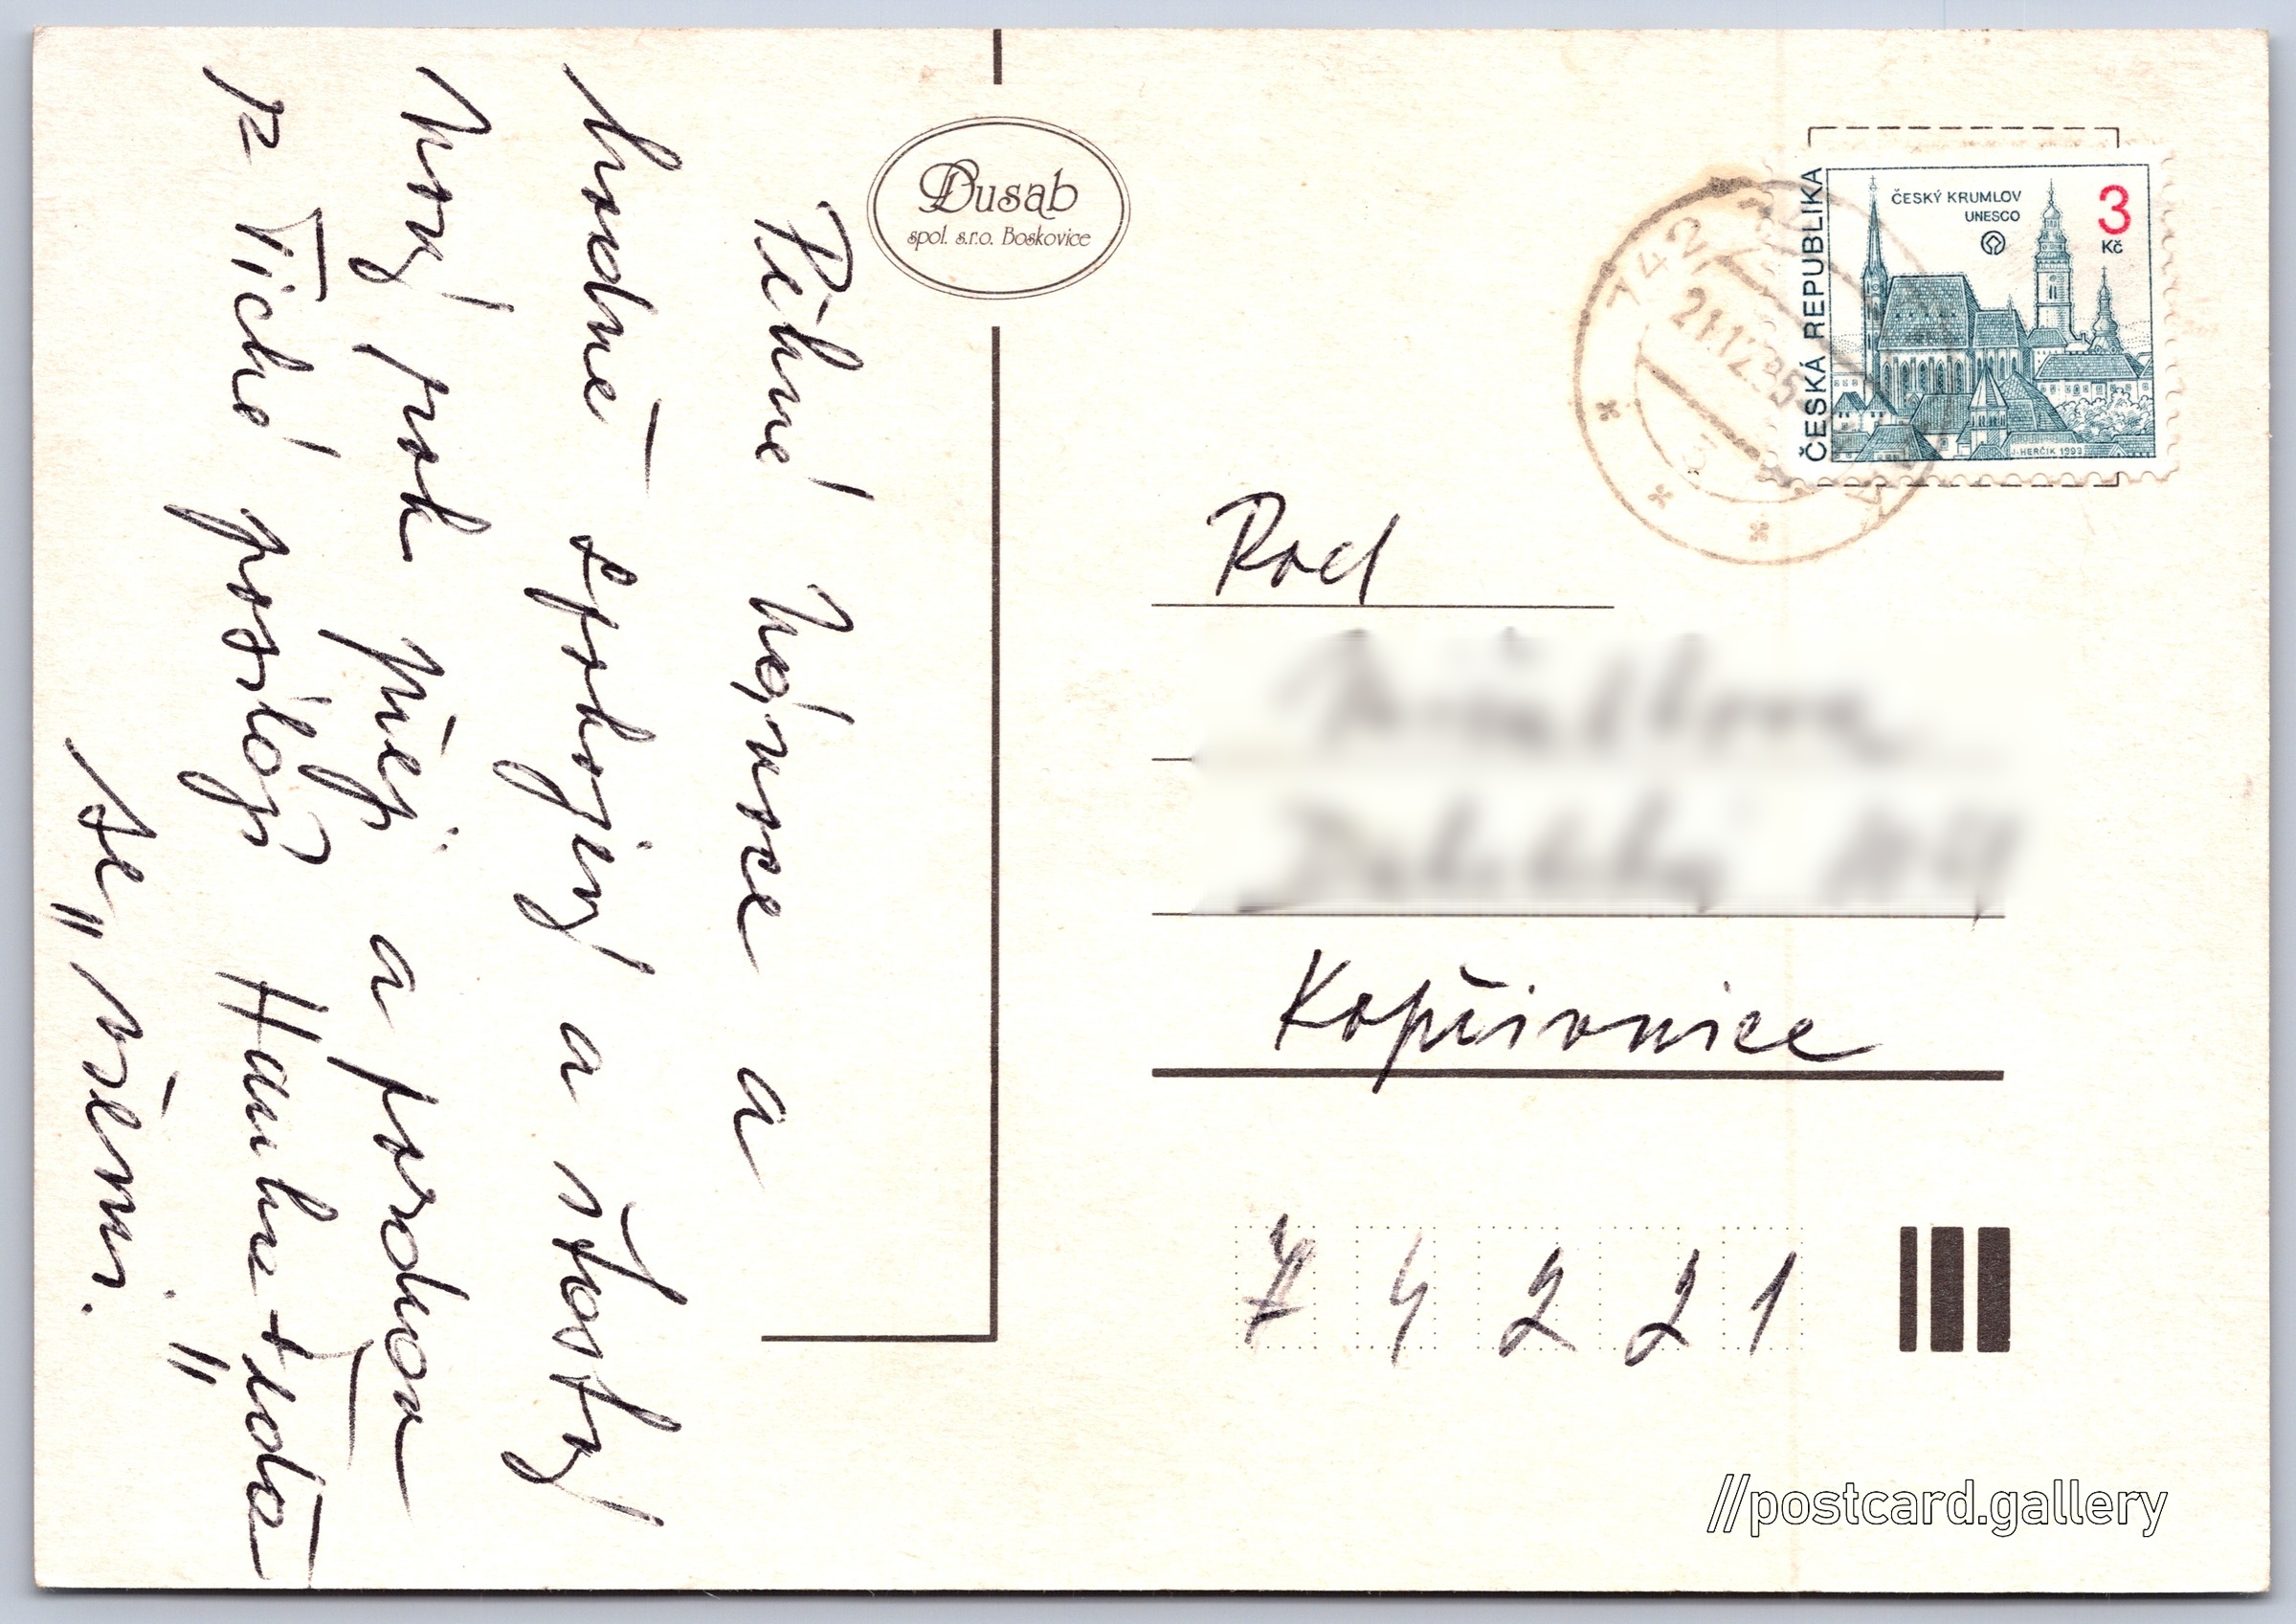 Pěkné vánoce a
hodně spokojený a šťastný
nový rok přeji a pozdrav
z Tiché posílají Hanka +
se „všemi."
Dusab
spol. s.r.o. Boskovice
ČESKÁ REPUBLIKA
ČESKÝ KRUMLOV
UNESCO
3
Kč
J. HERČÍK 1993
742
21.12.95
Rod
Kopřivnice
74221
//postcard.gallery